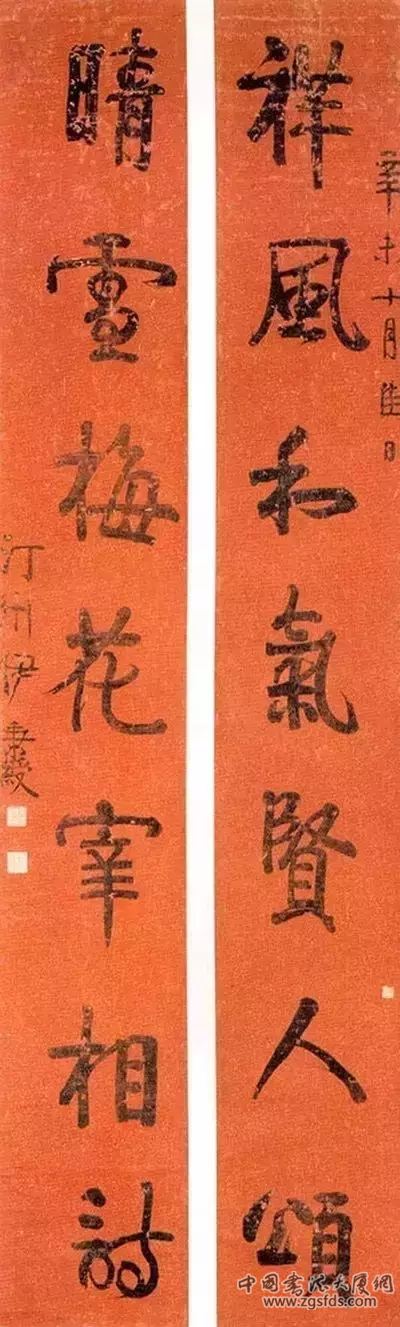 辛未十月佳日
祥風和氣賢人頌
晴雪梅花宰相詩
汀州伊秉綬
中国书法大厦网
www.zgsfds.com